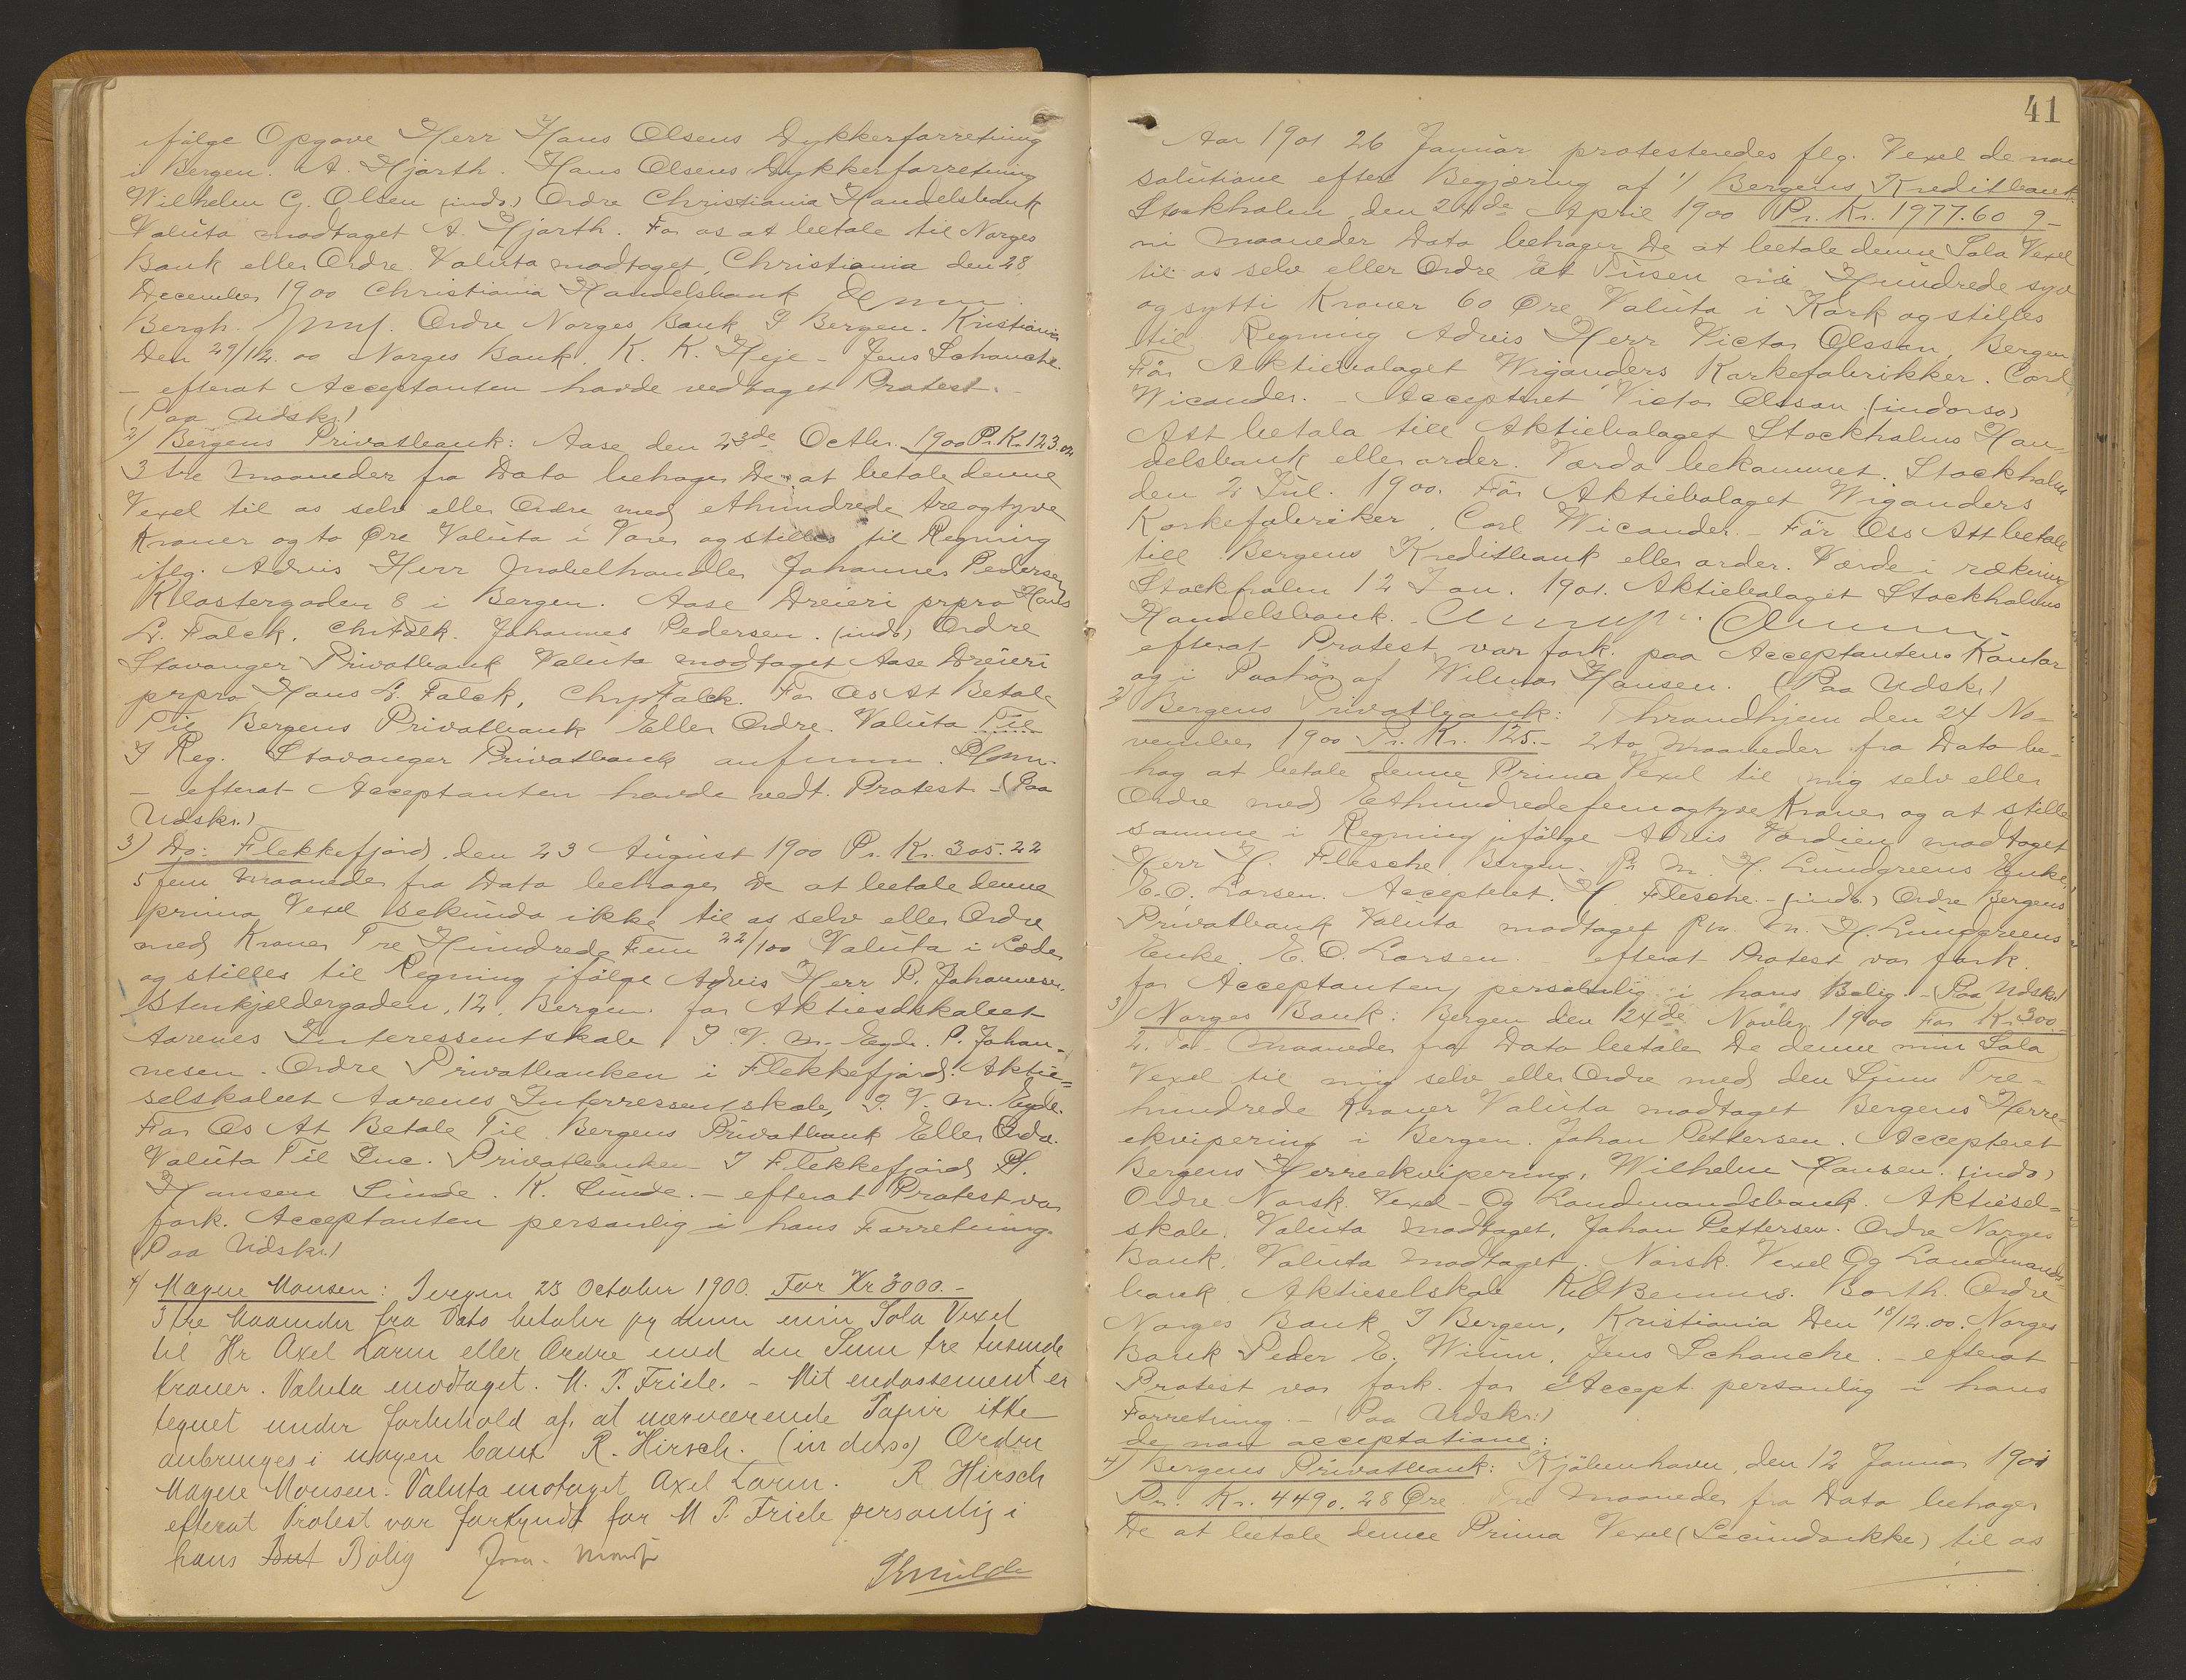 ifølge Opgave Herr Hans Olsens Dykkerforretning
i Bergen. A. Hjorth. Hans Olsens Dykkerforretning
Wilhelm G. Olsen (indo.) Ordre Christiania Handelsbank
Valuta modtaget A. Hjorth. For os at betale til Norges
Bank eller Ordre. Valuta modtaget, Christiania den 28
December 1900 Christiania Handelsbank
Bergh. Ordre Norges Bank I Bergen. Kristiania
Den 29/12. 00 Norges Bank. K. K. Heje - Jens Schanche.
- efterat Acceptanten havde vedtaget Protest.
(Paa Udskr.)
2) Bergens Privatbank: Aase den 23de Octbr. 1900 Pr. Kr. 123.02
3 tre Maaneder fra Dato behager De at betale denne
Vexel til os selv eller Ordre med ethundrede treogtyve
Kroner og to Øre Valuta i Varer og stilles til Regning
iflg. Advis Herr Møbelhandler Johannes Pedersen
Klostergaden 8 i Bergen. Aase Dreieri prpro Hans
L. Falck. Chr Falck. Johannes Pedersen. (indo) Ordre
Stavanger Privatbank Valuta modtaget Aase Dreieri
prpro Hans L. Falck, Chr Falck. For Os At Betale
Til Bergens Privatbank Eller Ordre. Valuta Til
I Reg. Stavanger Privatbank
- efterat Acceptanten havde vedt. Protest - (Paa
Udskr.)
3) Do: Flekkefjord, den 23 August 1900 Pr. Kr. 305.22
5 fem Maaneder fra Dato behager De at betale denne
prima Vexel sekunda ikke til os selv eller Ordre
med Kroner Tre Hundrede Fem 22/100 Valuta i Læder
og stilles til Regning ifølge Advis Herr P. Johannesen.
Stenkjældergaden, 12, Bergen. for Aktieselskabet
Aarenes Interessentskab I. V. M. Eyde. P. Johan-
nesen. Ordre Privatbanken i Flekkefjord. Aktie=
selskabet Aarenes Interressentskab, I. V. M. Eyde.
For Os At Betale Til Bergens Privatbank Eller Ordre.
Valuta Til Inc. Privatbanken I Flekkefjord
Hansen Sunde. K. Sunde. - efterat Protest var
fork. Acceptanten personlig i hans Forretning.
(Paa Udskr.)
4) Magne Monsen: Bergen 23 October 1900. For Kr 3000.-
3 tre Maaneder fra Dato betaler jeg denne min Sola Vexel
til Hr Axel Larm eller Ordre med den Sum tre tusinde
Kroner. Valuta modtaget. M. T. Friele. - Mit endossement er
tegnet under forbehold af, at nærværende Papir ikke
anbringes i nogen bank R. Hirsch. (indosso) Ordre
Magne Monsen. Valuta modtaget Axel Larm. R Hirsch
efterat Protest var forkyndt for M T. Friele personlig i
hans But Bolig
41
Aar 1901 26 Januar protesteredes flg. Vexel de non
solutione efter Begjæring af 1/ Bergens Kreditbank.
Stockholm, den 24de April 1900 Pr. Kr. 1977.60 9-
ni Maaneder Dato behager De at betale denne Sola Vexel
til os selv eller Ordre Et Tusen ni Hundrede syv
og sytti Kroner 60 Øre Valuta i Kork og stilles
til Regning Advis Herr Victor Olsson, Bergen
För Aktiebolaget Wiganders Korkefabrikker. Carl
Wicander. - Acceptert Victor Olsson (indosso)
Att betala till Aktiebolaget Stockholms Han-
delsbank eller order. Värdo bekommet. Stockholm
den 2 Jul. 1900. För Aktiebolaget Wiganders
Korkefabriker. Carl Wicander. - För Oss Att betale
till Bergens Kreditbank eller order. Værde i räkning
Stockholm 12 Jan. 1901. Aktiebolaget Stockholms
Handelsbank.
efterat Protest var fork. paa Acceptantens Kontor
og i Paahør af Wilmar Hansen. (Paa Udskr.)
2) Bergens Privatbank: Thrandhjem den 24 No-
vember 1900 Pr. Kr. 125.- 2 to Maaneder fra Dato be-
hag at betale denne Prima Vexel til mig selv eller
Ordre med Ethundredefemogtyve Kroner og at stille
samme i Regning ifølge Advis Værdien modtaget
Herr H. Flesche Bergen. Pr M. H. Lundgreens Enke,
E. O. Larsen. Accepteret. H. Flesche - (indo.) Ordre Bergens
Privatbank Valuta modtaget Pr. M. H. Lundgreens
Enke. E. O. Larsen. - efterat Protest var fork.
for Acceptanten personlig i hans Bolig. - (Paa Udskr)
3) Norges Bank: Bergen den 24de Novbr 1900 For Kr. 300.-
2. To Maaneder fra Dato betaler De denne min Sola
Vexel til mig selv eller Ordre med den Sum Tre-
hundrede Kroner Valuta modtaget Bergens Herre-
ekvipering i Bergen. Johan Pettersen. Accepteret
Bergens Herreekvipering, Wilhelm Hansen. (indo)
Ordre Norsk. Vexel- Og Landmandsbank. Aktiesel=
skab. Valuta modtaget, Johan Pettersen. Ordre Norges
Bank. Valuta modtaget. Norsk. Vexel Og Landmands-
bank Aktieselskab Barth. Ordre
Norges Bank I Bergen, Kristiania Den 18/12.00. Norges
Bank Peder E. Jens Schanche. - efterat
Protest var fork. for Accept. personlig i hans
Forretning. - (Paa Udskr:)
de non acceptatione:
4) Bergens Privatbank: Kjøbenhavn, den 12 Januar 1901
Pr. Kr. 4490.28 Øre. Tre Maaneder fra Dato behager
De at betale denne Prima Vexel (Secunda ikke) til os